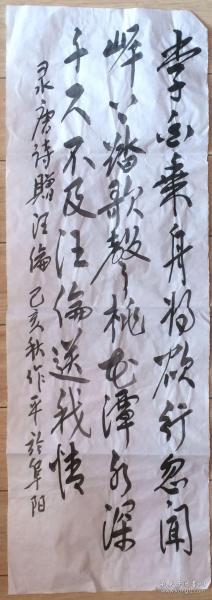 李白乘舟将欲行忽闻
岸上踏歌声桃花潭水深
千尺不及汪伦送我情
录唐诗赠汪伦 己亥秋作平於阜阳